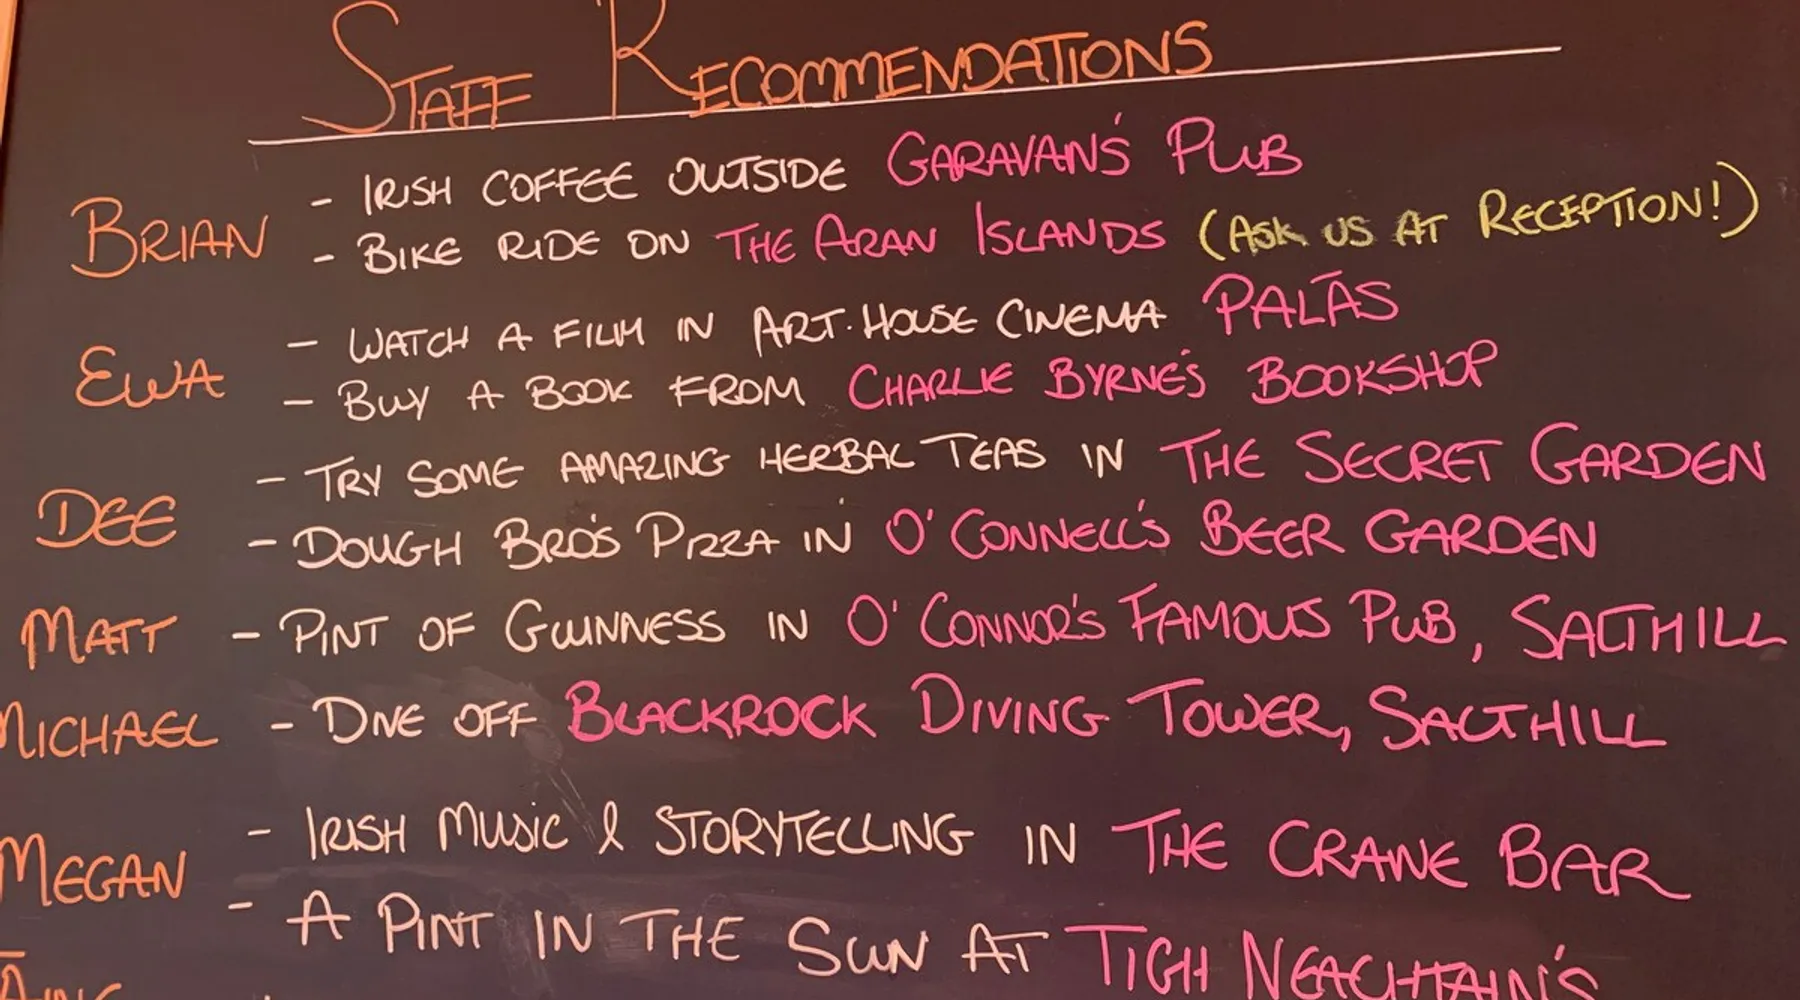 STAFF RECOMMENDATIONS
BRIAN
- IRISH COFFEE OUTSIDE GARAVAN'S PUB
- BIKE RIDE ON THE ARAN ISLANDS (ASK US AT RECEPTION!)
EWA
- WATCH A FILM IN ART-HOUSE CINEMA PALÁS
- BUY A BOOK FROM CHARLIE BYRNE'S BOOKSHOP
DEE
- TRY SOME AMAZING HERBAL TEAS IN THE SECRET GARDEN
- DOUGH BRO'S PIZZA IN O'CONNELL'S BEER GARDEN
MATT - PINT OF GUINNESS IN O'CONNOR'S FAMOUS PUB, SALTHILL
MICHAEL - DIVE OFF BLACKROCK DIVING TOWER, SALTHILL
MEGAN
- IRISH MUSIC & STORYTELLING IN THE CRANE BAR
- A PINT IN THE SUN AT TIGH NEACHTAIN'S